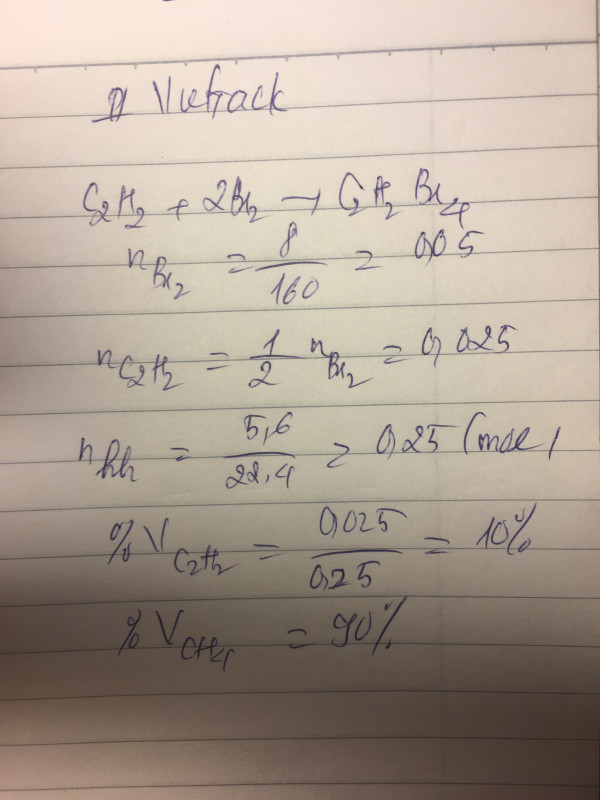 Vietjack
C2H2 + 2Br2 → C2H2Br4
nBr2 = 8/160 = 0,05
nC2H2 = 1/2 nBr2 = 0,025
nhh = 5,6/22,4 = 0,25 (mol)
%VC2H2 = 0,025/0,25 = 10%
%VCH4 = 90%